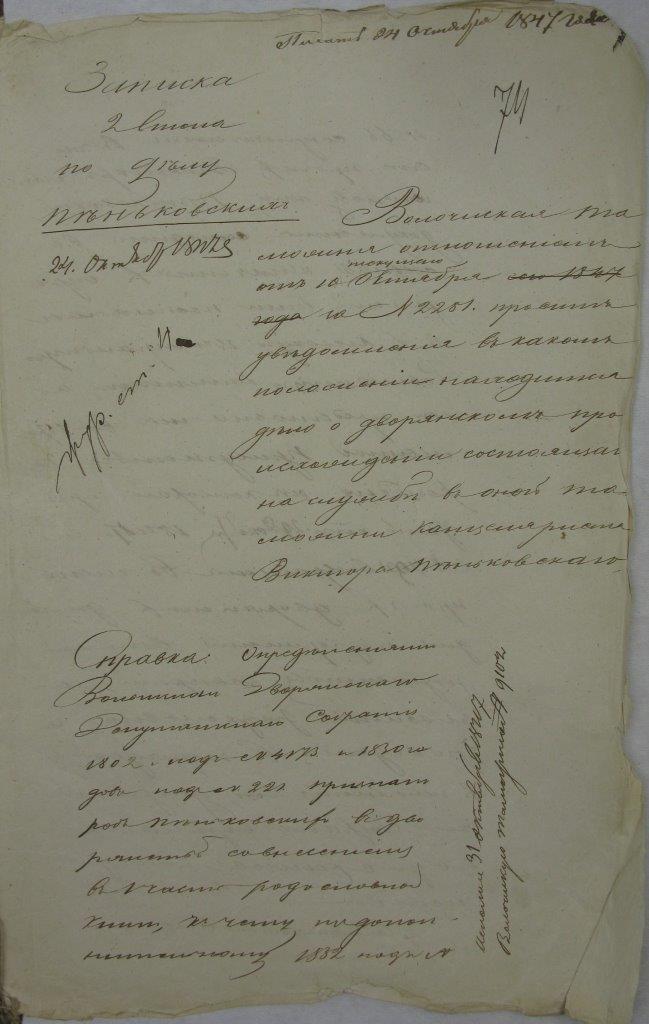 Писать 24 Октября 1847 года
74
Записка
2 Стола
по дѣлу
Пѣньковскихъ
24. Октября 1847
Волочиская та
можня отношеніемъ
текущаго
отъ 10 Октября сего 1847
года за N 2251. проситъ
увѣдомленія въ какомъ
положеніи находится
дѣло о дворянскомъ про
исхожденіи состоящаго
на службѣ въ оной та-
можни канцеляриста
Виктора Пѣньковскаго
Справка: Опредѣленіями
Волынскаго Дворянскаго
Депутатскаго Собранія
1802. подъ N и 1830 го
довъ подъ N 221 признанъ
родъ Пѣньковскихъ въ дво
рянствѣ со внесеніемъ
въ 1 часть родословной
книги, къ чему по допол-
нительному 1832 подъ N
Исполн 31 октября 1847
Волочискую таможню N 9102